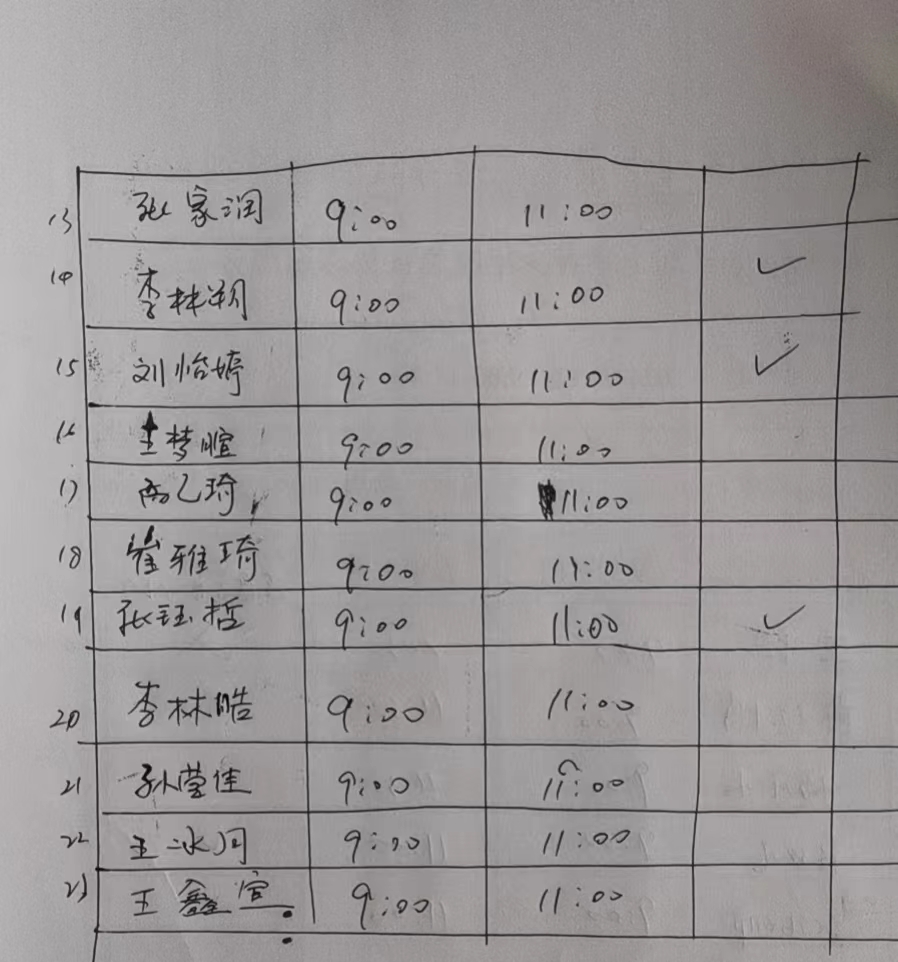 13 张家润 9:00 11:00
14 李林翊 9:00 11:00 ✓
15 刘怡婷 9:00 11:00 ✓
16 王梦暄 9:00 11:00
17 乙琦 9:00 11:00
18 崔雅琦 9:00 11:00
19 张钰哲 9:00 11:00 ✓
20 李林皓 9:00 11:00
21 孙莹佳 9:00 11:00
22 王冰 9:00 11:00
23 王鑫宣 9:00 11:00